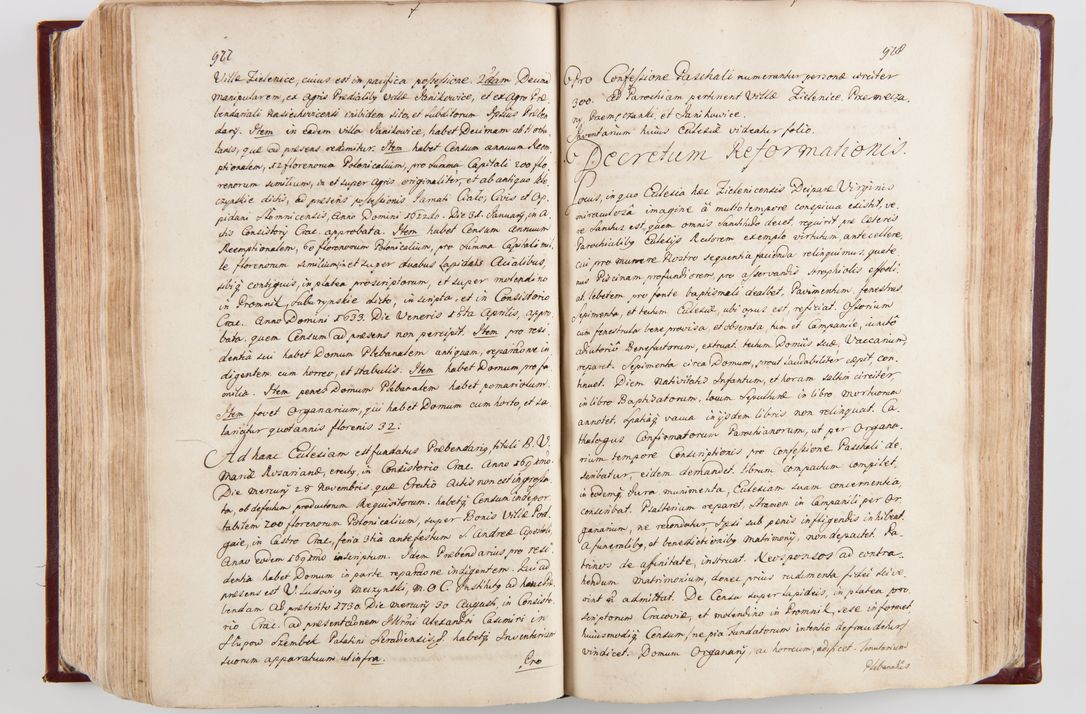 977
Villæ Zielenice, cuius est in pacifica possessione. Item Decimam
manipularem, ex agris Prædialibus villæ Janikowice, et ex agro Præ-
bendariali Rasiechovicensi inibidem sito, et subditorum Ipsius Præben
darij. Item in eadem villa Janikowice, habet Decimam ab
quæ ad præsens redimitur. Item habet Censum annuum Reem
ptionalem, 12 florenorum Polonicalium, pro summa Capitali 200 flo
renorum similium, in et super agris originaliter, et ab antiquo
dictis, ad præsens possessionis Jarnati Civis et Op-
pidani Slomnicensis, anno Domini Die 31. Januarij, in A-
ctis Consistorij Crac. approbata. Item habet Censum annuum
Reemptionalem, 60 florenorum Polonicalium, pro summa Capitali mil
le florenorum similium, in et super duabus lapideis Acialibus,
sibi contiguis, in platea proscriptorum, et super molendino
in Promnik, dicto, inscripta, et in Consistorio
Crac. Anno Domini 1633. Die Veneris Aprilis, appro
bata. quem Censum ad præsens non percipit. Item pro resi
dentia sui habet Domum Plebanalem antiquam, reparatione in
digentem cum horreo, et stabulis. Item habet Domum pro fa
milia. Item penes Domum Plebanalem habet pomariolum.
Item fovet Organarium, qui habet Domum cum horto, et sa
lariatur quotannis florenis 32:
Ad hanc Ecclesiam est fundatus Præbendarius, tituli B. V.
Mariæ Rosarianæ, erectus, in Consistorio Crac. Anno
Die Mercurij 28 Novembris. quæ Erectio Actis non est ingrossa
ta, ob defectum productorum Requisitorum. habetque Censum inde por
tabilem 200 florenorum Polonicalium, super Bonis Villæ Pod
gaie, in Castro Crac. feria 3tia ante festum S. Andreæ Apostoli
Anno eodem inscriptum. Idem Præbendarius pro resi
dentia habet Domum in parte reparatione indigentem. Qui ad
præsens est V. Ludovicus Mezynski, M. O. C. Institutus ad hanc Præ
bendam A præterito 1730. Die Mercurij 30 Augusti, in Consisto
rio Crac. ad præsentationem Illrmi Alexandri Casimiri in
Slupow Szembek Palatini Siradiensis, habetque Inventarium
suorum apparatuum ut infra.
Pro
978
Pro Confessione Paschali numerantur personæ circiter
300. Ad Parochiam pertinent Villæ Zielenice, Przemęcza
ny et Janikowice.
Inventarium huius Ecclesiæ videatur folio.
Decretum Reformationis.
Locus, in quo Ecclesia hæc Zielenicensis Deiparæ Virginis
miraculosâ imagine â multo tempore conspicua existit, ve
re sanctus est, quem omnis sanctitudo decet, requirit præ cæteris
Parochialibus Ecclesijs Rectorem exemplo virtutum antecellere,
cui pro munere Nostro sequentia facienda relinquimus, quate
nus Piscinam profundiorem, pro asservandis Strophiolis effodi
at, lebetem pro fonte baptismali dealbet, Pavimentum fenestras
Sepimenta, et tectum Ecclesiæ, ubi opus est, reficiat. Ossorium
cum fenestrula bene provisa et obserata, tum et Campanile, iunctô
adiutoriô Benefactorum, extruat. tectum Domûs suæ,
reparet. Sepimenta circa Domum, prout laudabiliter cæpit, con
tinuet. Diem Nativitatis Infantum, et horam saltim circiter,
in libro Baptizatorum, locum Sepulturæ in libro Mortuorum
annotet, spatiaque vacua in ijsdem libris non relinquat. Ca
thalogus Confirmatorum Parochianorum, ut per Organa
rium tempore Conscriptionis, pro Confessione Paschali de
scribatur, eidem demandet. librum compactum compilet,
in eodemque Iura munimenta, Ecclesiam suam concernentia,
conscribat. Psalterium reparet, Stramen in Campanili per Or
ganarium, ne recondatur Ipsi sub pænis infligendis inhibeat.
A funeralibus, et benedictionibus Matrimonij, non depactet. Pa
trinos de affinitate, instruat. Neosponsos ad contra-
hendum Matrimonium, donec prius rudimenta fidei scive
rint non admittat. De Censu super lapideis, in platea pro
scriptorum Cracoviæ, et molendino in Promnik, sese informet
huiusmodique Censum, ne pia Fundatorum intentio defraudetur,
vindicet. Domum Organarij, ac horreum, ædificet.
Plebanalis